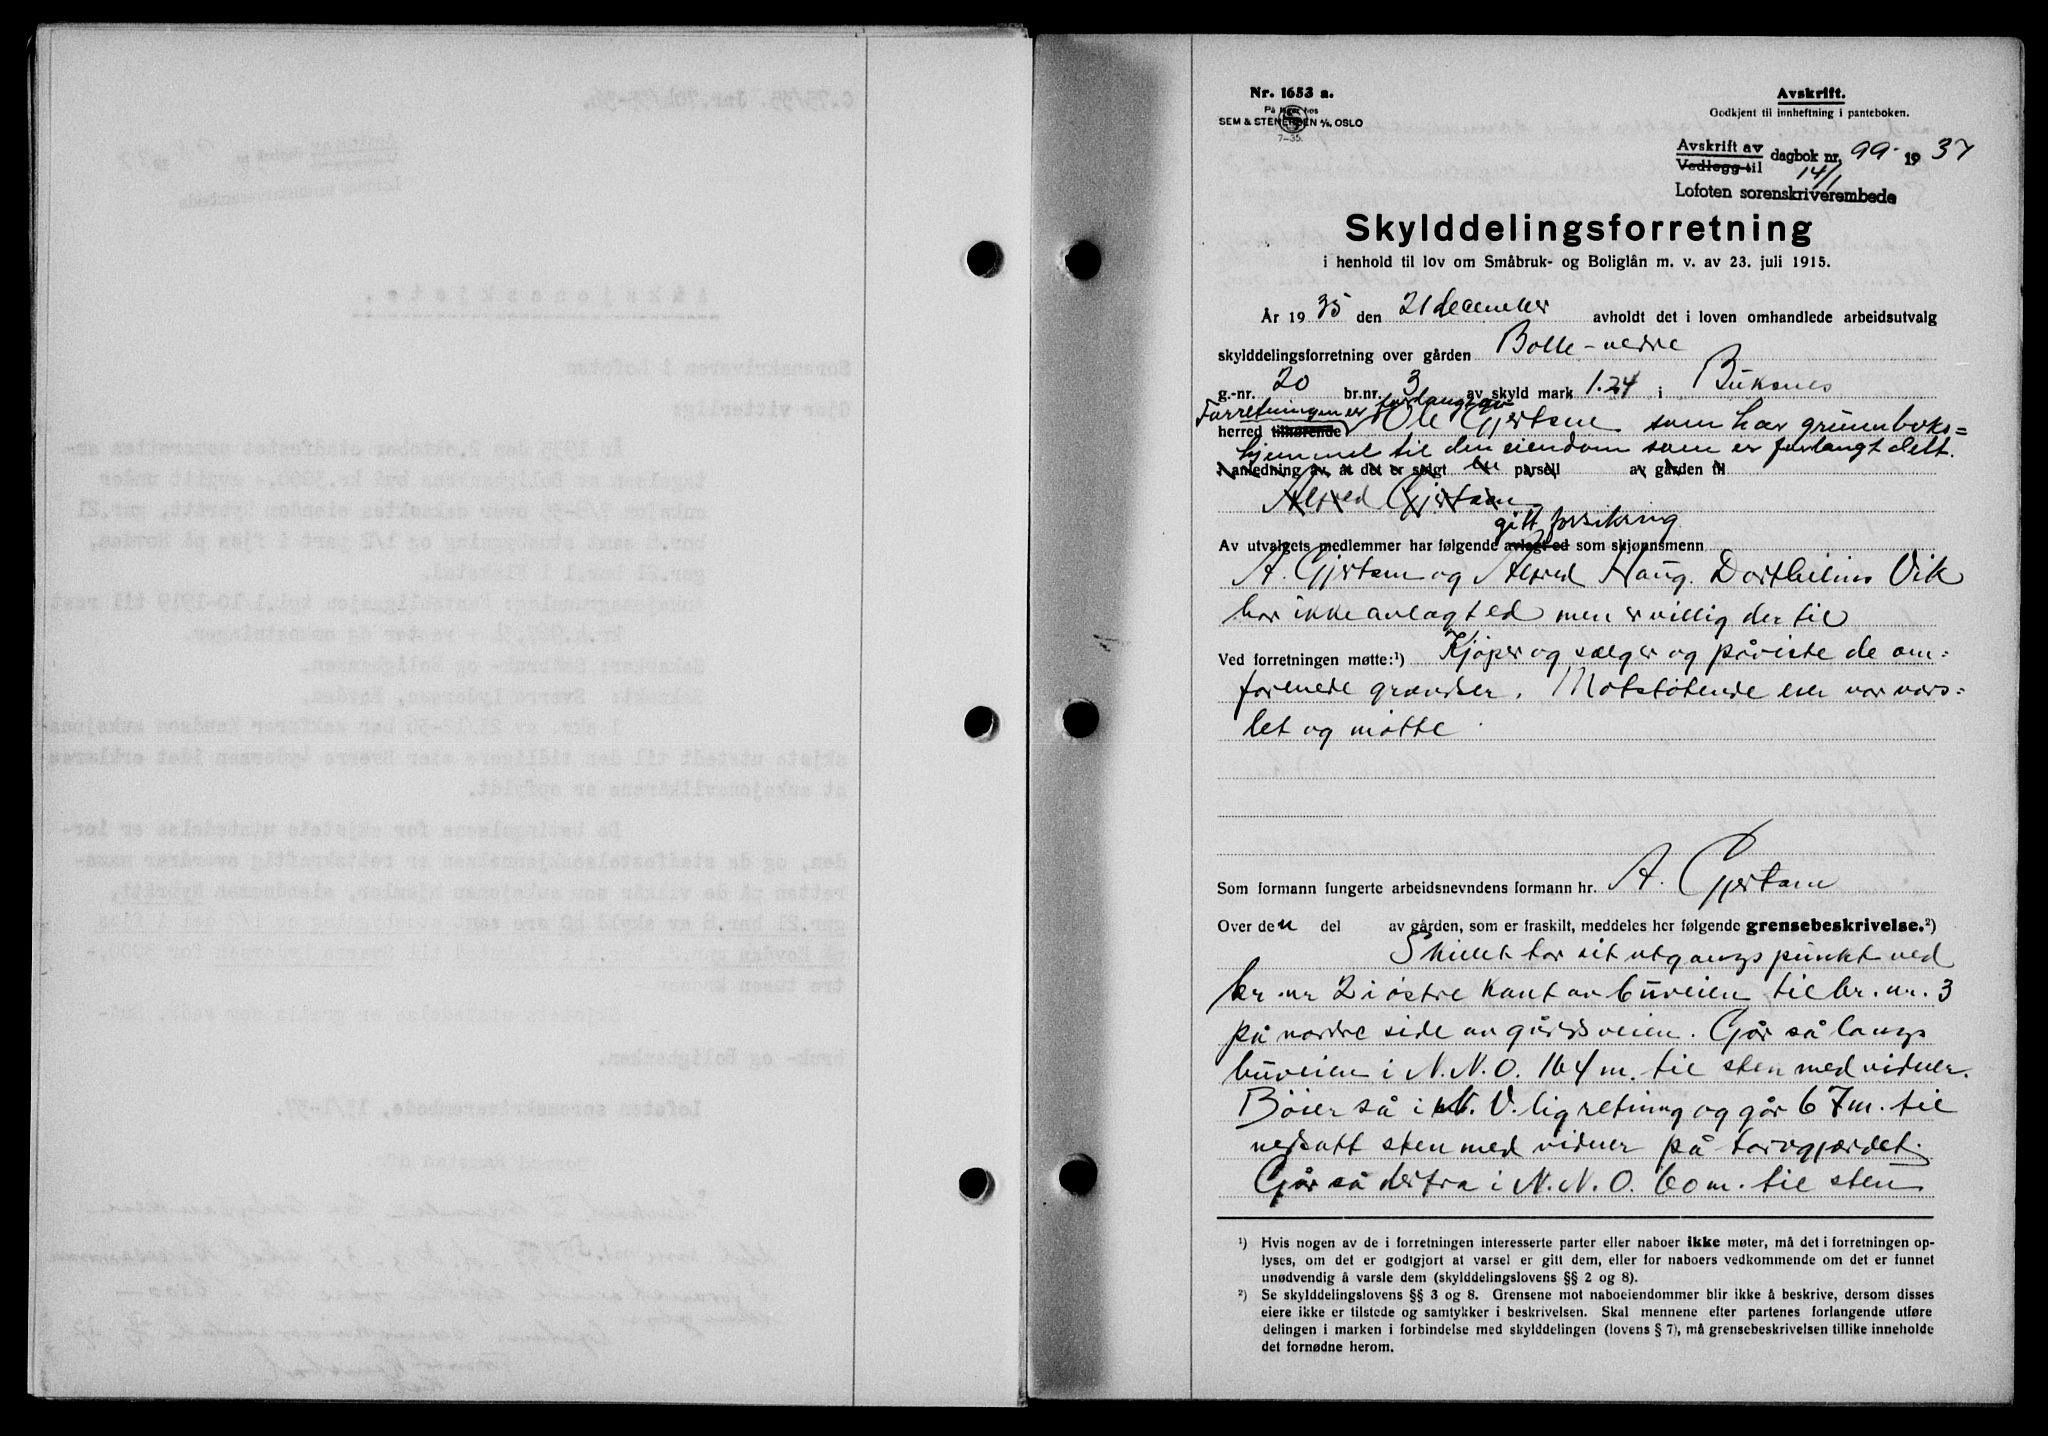 Nr. 1653 a.
På lager hos
SEM & STENERSEN A/S, OSLO
7-35.
Avskrift.
Godkjent til innheftning i panteboken.
Avskrift av
Vedlegg til
dagbok nr. 99 - 19 37
14/1
Lofoten sorenskriverembede
Skylddelingsforretning
i henhold til lov om Småbruk- og Boliglån m. v. av 23. juli 1915.
År 1935 den 21 december avholdt det i loven omhandlede arbeidsutvalg
skylddelingsforretning over gården Bolle-nedre
g.-nr. 20 br.nr. 3 av skyld mark 1.24 i Buksnes
Forretningen er forlangt av
herred tilhørende Ole Gjertsen som har grunnboks=
hjemmel til den eiendom som er forlangt delt.
i anledning av, at det er solgt en parsell av gården til
Alfred Gjertsen
gitt forsikring
Av utvalgets medlemmer har følgende avlagt ed som skjønnsmenn
A. Gjertsen og Alfred Haug. Dorthelius Vik
har ikke avlagt ed men er villig der til
Ved forretningen møtte:¹) Kjøper og sælger og påviste de om=
forenede grændser. Motstøtende eier var vars=
let og møtte.
Som formann fungerte arbeidsnevndens formann hr. A. Gjertsen
Over den del av gården, som er fraskilt, meddeles her følgende grensebeskrivelse.²)
Skillet tar sit utgangspunkt ved
br. nr 2 i østre kant av buveien til br. nr. 3
på nordre side av gårdsveien. Går så langs
buveien i N.N.O. 164 m. til sten med vidner.
Bøier så i N.V. lig retning og går 67 m. til
nedsatt sten med vidner på torvgjærdet.
Går så derfra i N.N.O. 60 m. til sten
¹) Hvis nogen av de i forretningen interesserte parter eller naboer ikke møter, må det i forretningen op-
lyses, om det er godtgjort at varsel er gitt dem, eller for naboers vedkommende om det er funnet
unødvendig å varsle dem (skylddelingslovens §§ 2 og 8).
²) Se skylddelingslovens §§ 3 og 8. Grensene mot naboeiendommer blir ikke å beskrive, dersom disses
eiere ikke er tilstede og samtykker i beskrivelsen. Skal mennene efter partenes forlangende utføre
delingen i marken i forbindelse med skylddelingen (lovens § 7), må grensebeskrivelsen tillike inneholde
det fornødne herom.